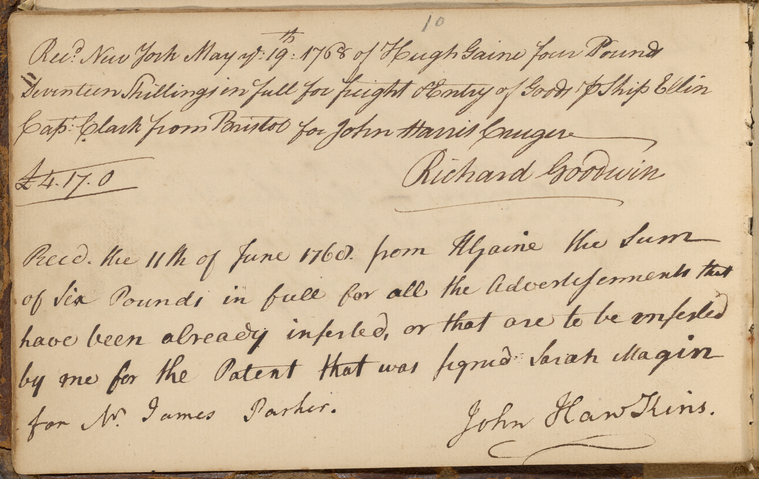 10
Rec.d New York May ye. 19th: 1768 of Hugh Gaine four Pound
Seventeen Shillings in full for freight & Entry of Goods ℘ Ship Ellin
Cap.t Clark from Bristol for John Harris Cruger
£4.17.0 Richard Goodwin
Recd. the 11th of June 1768. from HGaine the Sum
of Six Pounds in full for all the Advertisements that
have been already inserted, or that are to be inserted
by me for the Patent that was signed Sarah Magin
for Mr. James Parker.
John Hawkins.